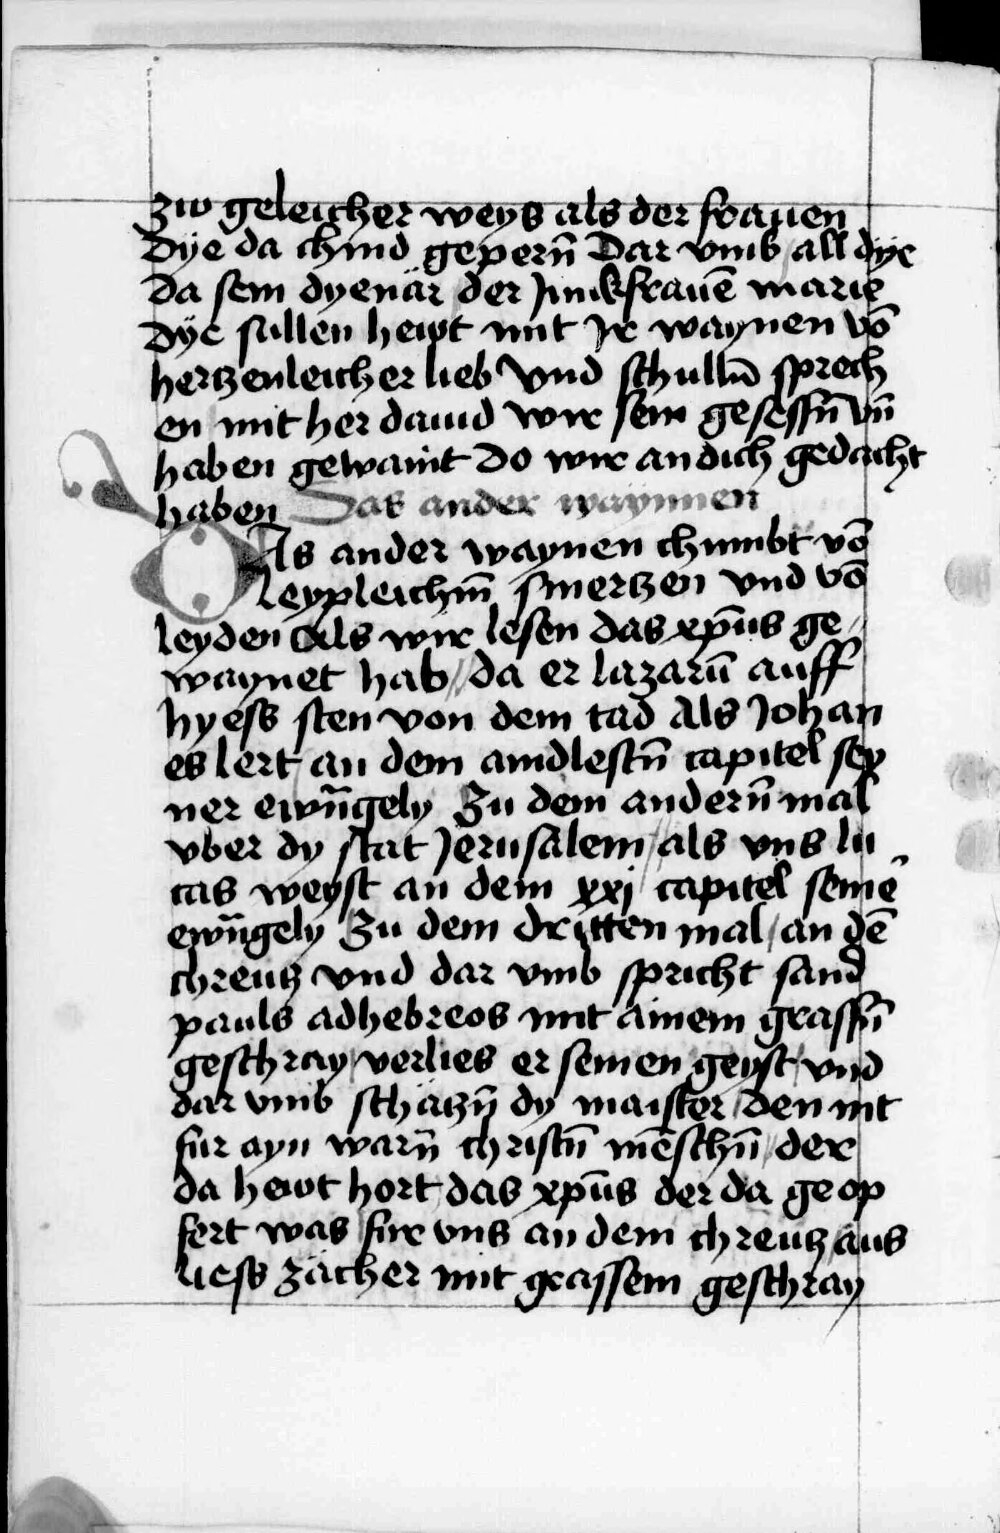 zw geleicher weys als der frauen
Dÿe da chind geperñ Dar vmb / all dÿe
da sein dyenär der Junkfrauē marie
Dÿe sullen hewt mit Jr waynen vō
hertzenleicher lieb Vnd schulln̄ sprech
en mit her dauid wir sein gesessn̄ vn̄
haben gewaint Do wir an dich gedacht
haben Das ander waynnen
DAs ander waynen chumbt vō
leypleichm̄ smertzen vnd vō
leyden Als wir lesen das xp̄us ge⸗
waynet hab // da er lazarū auff
hyess sten von dem tad Als Johan
es lert / an dem aindlestn̄ capitel sey
ner ewn̄gely Zu dem anderñ mal
vber dy stat Jerusalem / als vns lu
cas weyst an dem xxj capitel seinē
ewn̄gely Zu dem dritten mal / an dē
chreutz vnd dar vmb spricht sand
pauls ad hebreos mit ainem grassn̄
geschray / verlies er seinen geyst / vnd
dar vmb schätzn̄ dy maister / den nit
fur ayn warn̄ christn̄ mēschn̄ / der
da hewt hort / das xp̄us der da geop
fert was fur vns an dem chreutz / aus
liess zächer mit grassem geschray